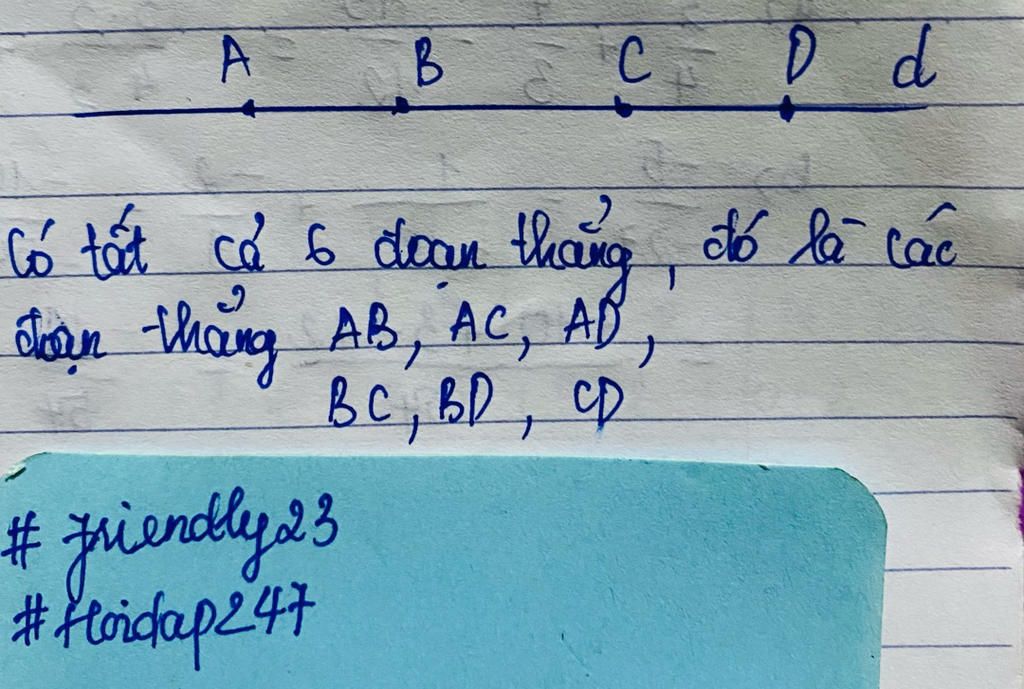 A B C D d
Có tất cả 6 đoạn thẳng, đó là các
đoạn thẳng AB, AC, AD,
BC, BD, CD
# friendly23
# Hoidap247